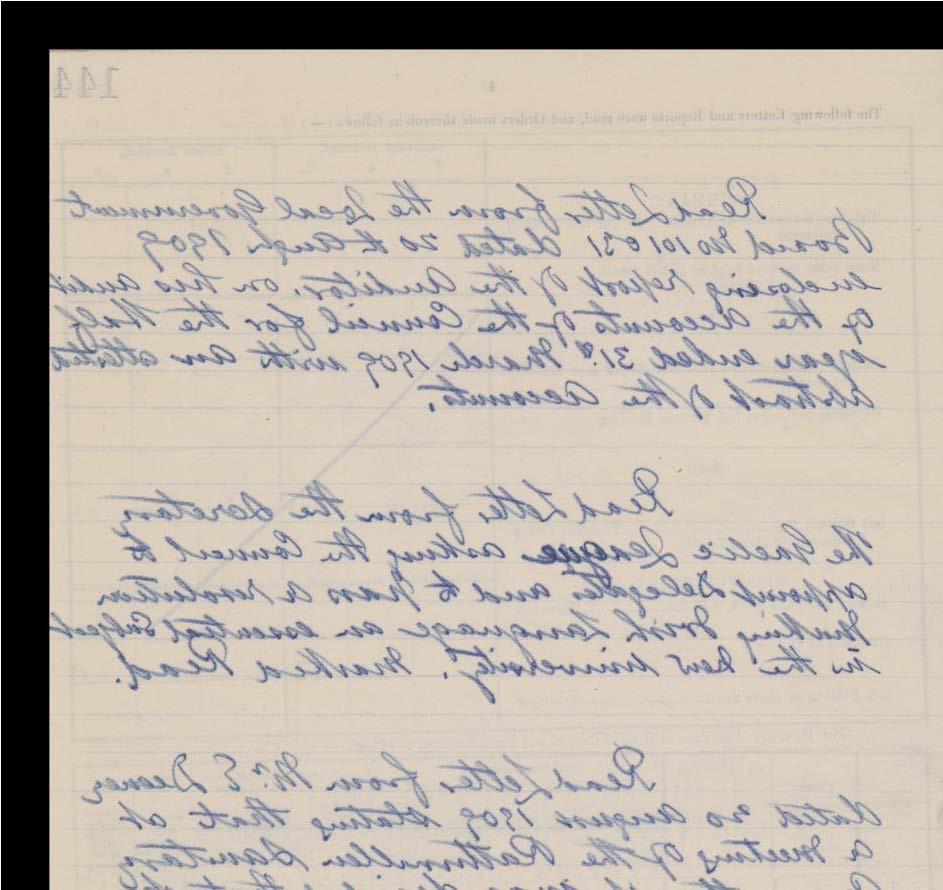 144
4
The following Letters and Reports were read, and Orders made thereon as follows :—
Read Letter from the Local Government
Board No 101051 dated 20th Augt. 1909
enclosing report of the Auditor, on his audit
of the accounts of the Council for the Half
year ended 31st March 1909 with an attested
abstract of the accounts.
Read Letter from the Secretary
the Gaelic League asking the Council to
appoint Delegates and to pass a resolution
making Irish Language an essential subject
in the new University. Marked Read.
Read Letter from Mr. E
dated 20 August 1909 stating that at
a meeting of the Rathvilly Sanitary